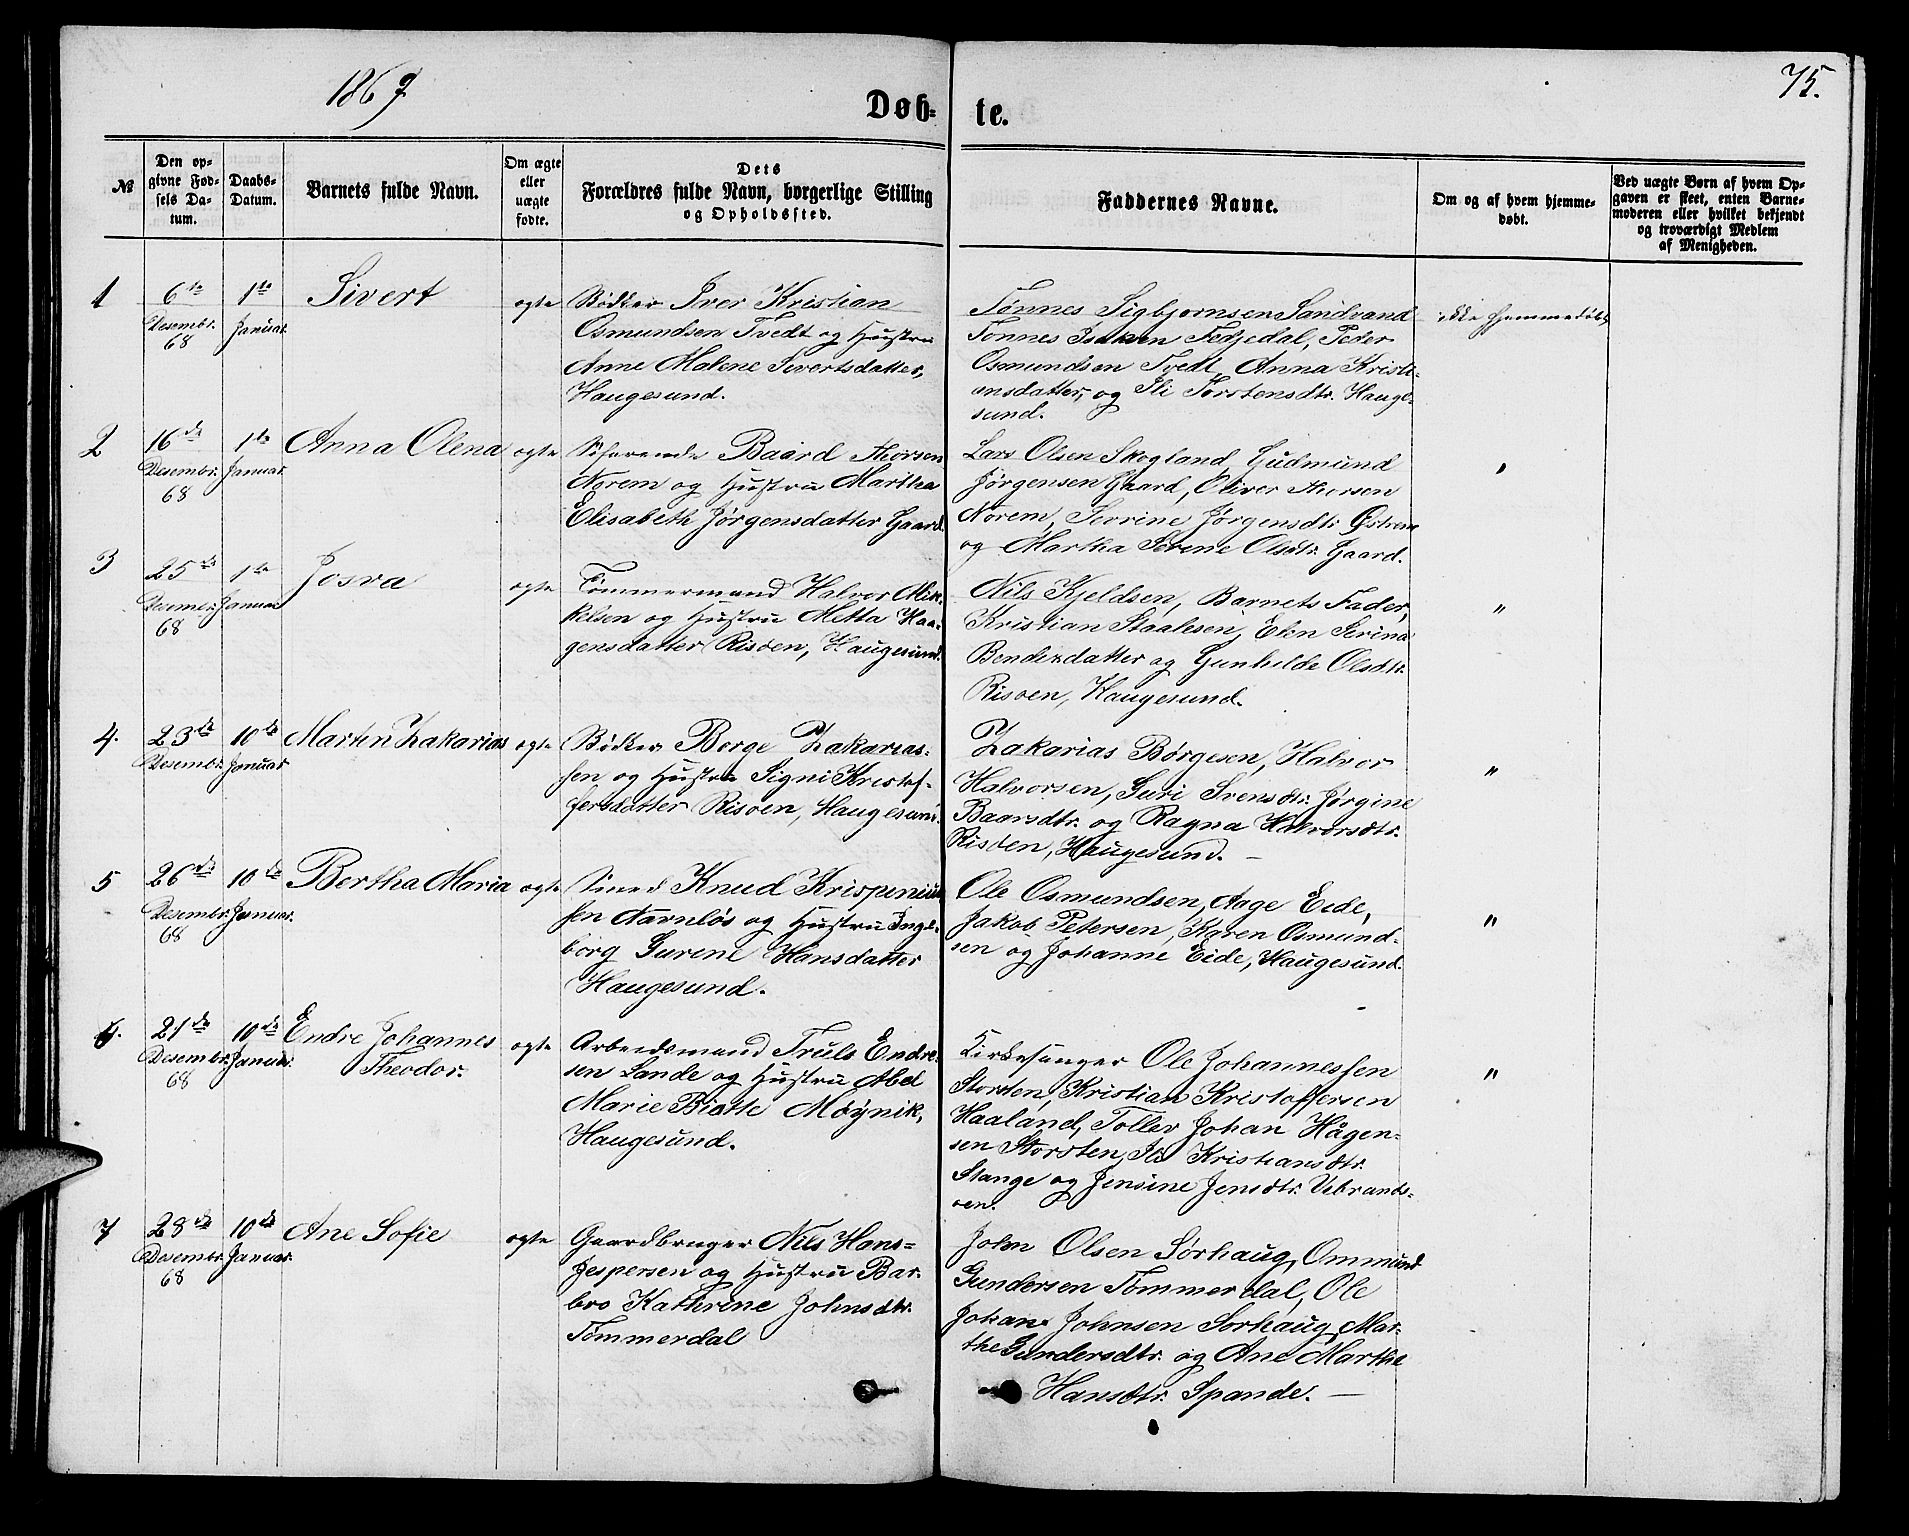 1869
75.
Døb-
te.
№
Den op-
givne Fød-
sels Da-
tum.
Daabs-
Datum.
Barnets fulde Navn.
Om ægte
eller
uægte
fødte.
Dets
Forældres fulde Navn, borgerlige Stilling
og Opholdssted.
Faddernes Navne.
Om og af hvem hjemme-
døbt.
Ved uægte Børn af hvem Op-
gaven er skeet, enten Barne-
moderen eller hvilket bekjendt
og troværdigt Medlem
af Menigheden.
1
6te
Desembr.
68
1te
Januar.
Sivert
ægte
Bødker Iver Kristian
Osmundsen Tvedt og Hustru
Anne Malene Sivertsdatter,
Haugesund.
Tønnes Sigbjørnsen Sandvand
Tønnes Isaksen Tedjedal, Peder
Osmundsen Tvedt, Anna Kristi-
ansdatter, og Sli Torstensdtr. Hauge-
sund.
ikke hjemmedøbt
2
16de
Desembr.
68
1te
Januar.
Anna Olena
ægte
Søfarende Baard Thorsen
Norem og Hustru Martha
Elisabeth Jørgensdatter Gaard.
Lars Olsen Skogland, Gudmund
Jørgensen Gaard, Oliver Thorsen
Norem, Serrine Jørgensdtr Østrem
og Martha Serene Olsdtr. Gaard.
"
3
25de
Desember.
68
1te
Januar
Josva
ægte
Tømmermand Halvor Mik-
kelsen og Hustru Metta Haa-
gensdatter Risøen, Haugesund.
Nils Kjeldsen, Barnets Fader,
Kristian Staalesen, Elen Serina
Bendixdatter og Gunhilde Olsdtr.
Risøen, Haugesund.
"
4.
23de
Desembr.
68
10de
Januar
Martin Zakarias
ægte
Bødker Børge Zakarias-
sen og Hustru Signi Kristof-
fersdatter Risøen, Haugesund.
Zakarias Børgesen, Halvor
Halvorsen, Guri Svensdtr. Jørgine
Baarsdtr. og Ragna Halvorsdtr.
Risøen, Haugesund. —
"
5
26de
Desembr.
68
10de
Januar.
Bertha Maria
ægte
Smed Knud Krispinius-
sen Aarnløs og Hustru Inge-
borg Gurene Hansdatter
Haugesund.
Ole Osmundsen, Aage Eide,
Jakob Petersen, Karen Osmund-
sen og Johanne Eide, Haugesund.
"
6.
21de
Desembr.
68
10de
Januar.
Endre Johannes
Theodor.
ægte
Arbeidsmand Truls Endre-
sen Lande og Hustru Abel
Marie Biatte Møynik,
Haugesund.
Kirkesanger Ole Johannessen
Storsten, Kristian Kristoffersen
Haaland, Toller Johan Hågen-
sen Storsten, Sli Kristiansdtr.
Stange og Jensine Jensdtr. Vibrands-
øen.
"
7
28de
Desembr.
68
10de
Januar.
Ane Sofie
ægte
Gaardbruger Nils Hans-
Jespersen og Hustru Bar-
bro Kathrine Johnsdtr.
Tømmerdal
John Olsen Sørhaug, Ommund
Gundersen Tømmerdal, Ole
Johan Johnsen Sørhaug, Mar-
the Gundersdtr. og Ane Marthe
Hansdtr. Spande. —